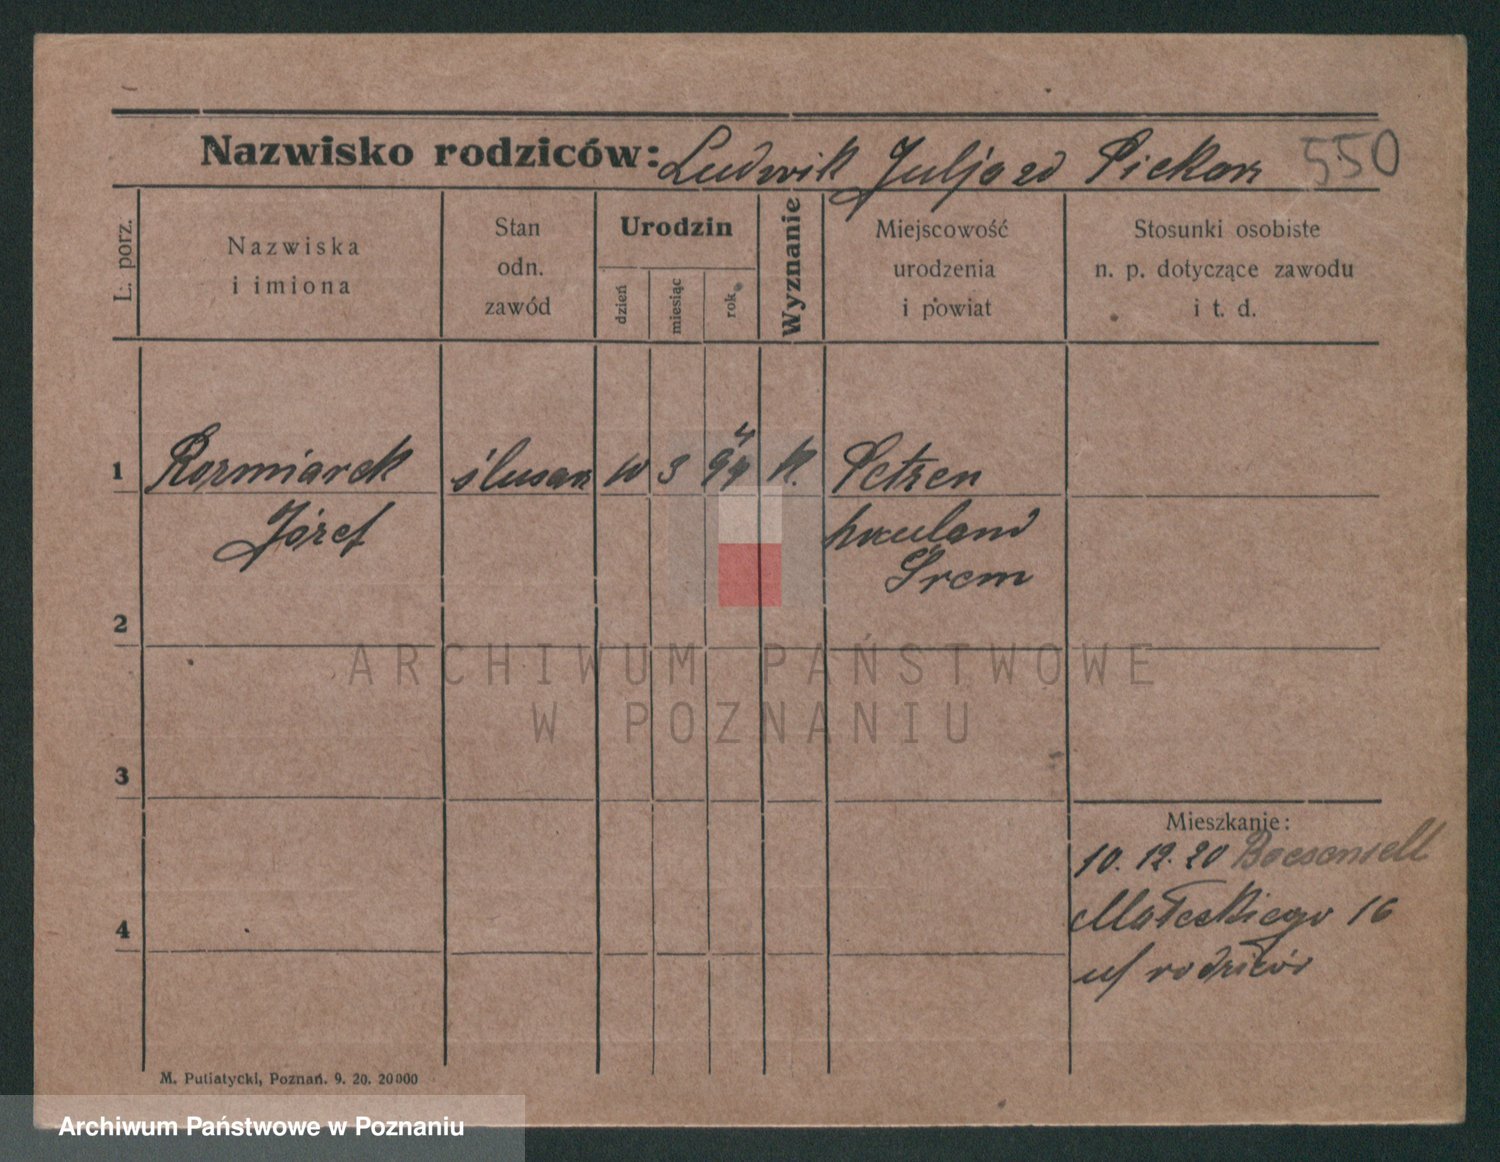 Nazwisko rodziców: Ludwik Juljozd Piekarz 550
L. porz.
Nazwiska
i imiona
Stan
odn.
zawód
Urodzin
dzień
miesiąc
rok
Wyznanie
Miejscowość
urodzenia
i powiat
Stosunki osobiste
n. p. dotyczące zawodu
i t. d.
1 Rozmiarek ślusarz 10 3 94 K.
Józef hauland
Śrem
2
3
4
Mieszkanie:
10. 12. 20
Małeckiego 16
u/ rodziców
M. Putiatycki, Poznań. 9. 20. 20000
ARCHIWUM PAŃSTWOWE
W POZNANIU
Archiwum Państwowe w Poznaniu